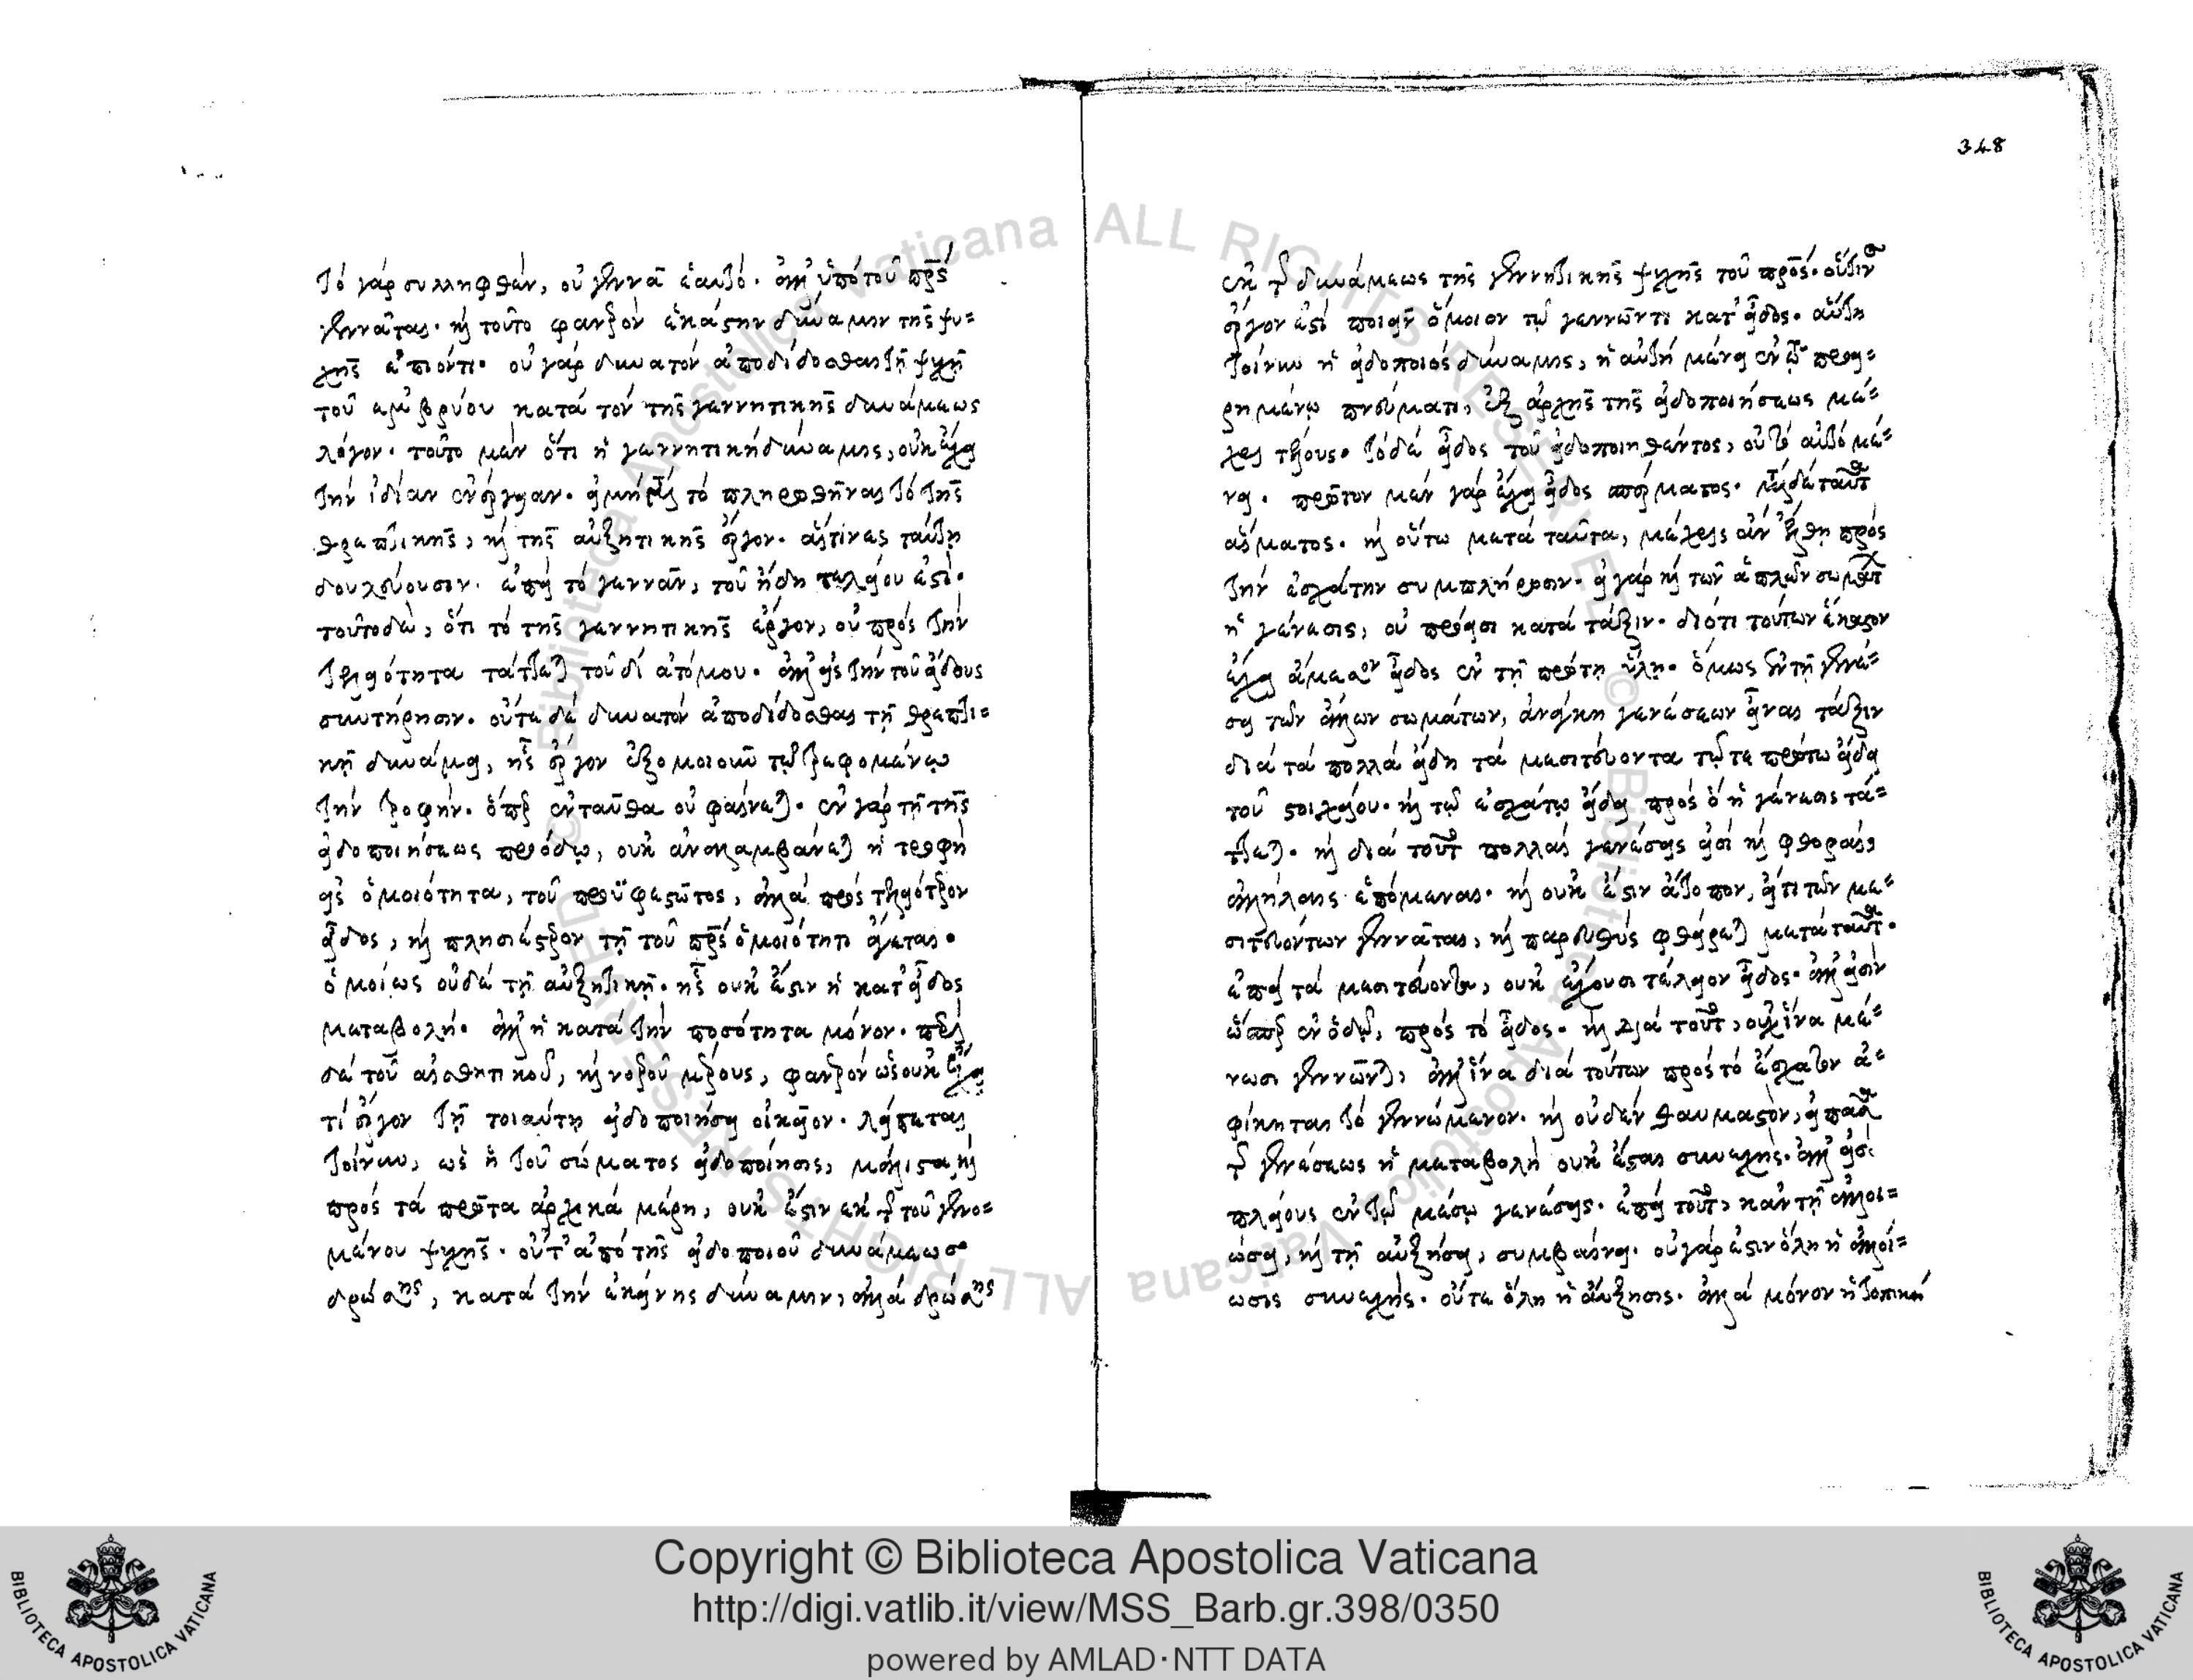 τὸ γὰρ συλληφθὲν, οὐ γεννᾶ ἑαυτό. ἀλλ' ὑπὸ τοῦ πρς
γεννᾶται. καὶ τοῦτο φανερὸν ἑκάστην δύναμιν τῆς ψυ=
χῆς ἐπιόντι. οὐ γὰρ δυνατὸν ἀποδίδοσθαι τῇ ψυχῇ
τοῦ ἐμβρύου κατὰ τὸν τῆς γεννητικῆς δυνάμεως
λόγον. τοῦτο μὲν ὅτι ἡ γεννητικὴ δύναμις, οὐκ ἔχει
τὴν ἰδίαν ἐνέργειαν. εἰ μὴ τὸ πληρωθῆναι τὸ τῆς
θρεπτικῆς, καὶ τῆς αὐξητικῆς ἔργον. αἵτινες ταύτῃ
δουλεύουσιν. ἐπεὶ τὸ γεννᾶν, τοῦ ἤδη τελείου ἐστί.
τοῦτο δὲ, ὅτι τὸ τῆς γεννητικῆς ἔργον, οὐ πρὸς τὴν
τελειότητα τάττεται τοῦ δὶ ἀτόμου. ἀλλ' εἰς τὴν τοῦ εἴδους
συντήρησιν. οὔτε δὲ δυνατὸν ἀποδίδοσθαι τῇ θρεπτι=
κῇ δυνάμει, ἧς ἔργον ἐξομοιοῦν τῷ τρεφομένῳ
τὴν τροφήν. ὅπερ ἐνταῦθα οὐ φαίνεται. ἐν γὰρ τῇ τῆς
εἰδοποιήσεως προόδῳ, οὐκ ἀναλαμβάνεται ἡ τροφὴ
εἰς ὁμοιότητα, τοῦ προϋφεστῶτος, ἀλλὰ πρὸς τελειότερον
εἶδος, καὶ πλησιέστερον τῇ τοῦ πρς ὁμοιότητι ἄγεται.
ὁμοίως οὐδὲ τῇ αὐξητικῇ. ἧς οὐκ ἔστιν ἡ κατ' εἶδος
μεταβολή. ἀλλ' ἡ κατὰ τὴν ποσότητα μόνον. περὶ
δὲ τοῦ αἰσθητικοῦ, καὶ νοεροῦ μέρους, φανερὸν ὡς οὐκ ἔχει
τί ἔργον τῇ τοιαύτῃ εἰδοποιήσει οἰκεῖον. λείπεται
τοίνυν, ὡς ἡ τοῦ σώματος εἰδοποίησις, μάλιστα καὶ
πρὸς τὰ πρῶτα ἀρχικὰ μέρη, οὐκ ἔστιν ἐκ τ τοῦ γεννω=
μένου ψυχῆς. οὔτ' ἀπὸ τῆς εἰδοποιοῦ δυνάμεως
δρώσης, κατὰ τὴν ἐκείνης δύναμιν, ἀλλὰ δρώσης
348
ἐκ τ δυνάμεως τῆς γεννητικῆς ψυχῆς τοῦ πρς. οὗτιν
ἔργον ἐστὶ ποιεῖν ὅμοιον τῷ γεννῶντι κατ' εἶδος. αὕτη
τοίνυν ἡ εἰδοποιὸς δύναμις, ἡ αὐτὴ μένει ἐν τῷ προει=
ρημένῳ πνεύματι, ἐξ ἀρχῆς τῆς εἰδοποιήσεως μέ=
χρι τέλους. τὸ δὲ εἶδος τοῦ εἰδοποιηθέντος, οὐ τὸ αὐτὸ μέ=
νει. πρῶτον μὲν γὰρ ἔχει εἶδος σπέρματος. μετὰ δὲ ταῦτα
αἵματος. καὶ οὕτω μετὰ ταῦτα, μέχρις ἂν ἔλθῃ πρὸς
τὴν ἐσχάτην συμπλήρωσιν. εἰ γὰρ καὶ τῶν ἁπλῶν σωμάτ
ἡ γένεσις, οὐ πρόεισι κατὰ τάξιν. διότι τούτων ἕκαστον
ἔχει ἄμεσον εἶδος ἐν τῇ πρώτῃ ὕλῃ. ὅμως ἐν τῇ γενέ=
σει τῶν ἄλλων σωμάτων, ἀνάγκη γενέσεων εἶναι τάξιν
διὰ τὰ πολλὰ εἴδη τὰ μεσιτεύοντα τῷ τε πρώτῳ εἴδει
τοῦ στοιχείου. καὶ τῷ ἐσχάτῳ εἴδει πρὸς ὃ ἡ γένεσις τά=
ττεται. καὶ διὰ τοῦτο πολλαὶ γενέσεις εἰσὶ καὶ φθοραὶ,
ἀλλήλαις ἑπόμεναι. καὶ οὐκ ἔστιν ἄτοπον, εἴ τι τῶν με=
σιτευόντων γεννᾶται, καὶ παρευθὺς φθείρεται μετὰ ταῦτα.
ἐπεὶ τὰ μεσιτεύοντα, οὐκ ἔχουσι τέλειον εἶδος. ἀλλ' εἰσὶν
ὥσπερ ἐν ὁδῷ, πρὸς τὸ εἶδος. καὶ διὰ τοῦτο, οὐχ ἵνα μέ=
νωσι γεννῶνται, ἀλλ' ἵνα διὰ τούτων πρὸς τὸ ἔσχατον ἀ=
φίκηται τὸ γεννώμενον. καὶ οὐδὲν θαυμαστὸν, εἰ πᾶσα
τ γενέσεως ἡ μεταβολὴ οὐκ ἔσται συνεχής. ἀλλ' εἰσὶ
πλείους ἐν τῷ μέσῳ γενέσεις. ἐπεὶ τοῦτο, κἀν τῇ ἀλλοι=
ώσει, καὶ τῇ αὐξήσει, συμβαίνει. οὐ γάρ ἐστιν ὅλη ἡ ἀλλοί=
ωσις συνεχής. οὔτε ὅλη ἡ αὔξησις. ἀλλὰ μόνον ἡ τοπικὴ
Copyright © Biblioteca Apostolica Vaticana
http://digi.vatlib.it/view/MSS_Barb.gr.398/0350
powered by AMLAD·NTT DATA
BIBLIOTECA APOSTOLICA VATICANA
BIBLIOTECA APOSTOLICA VATICANA